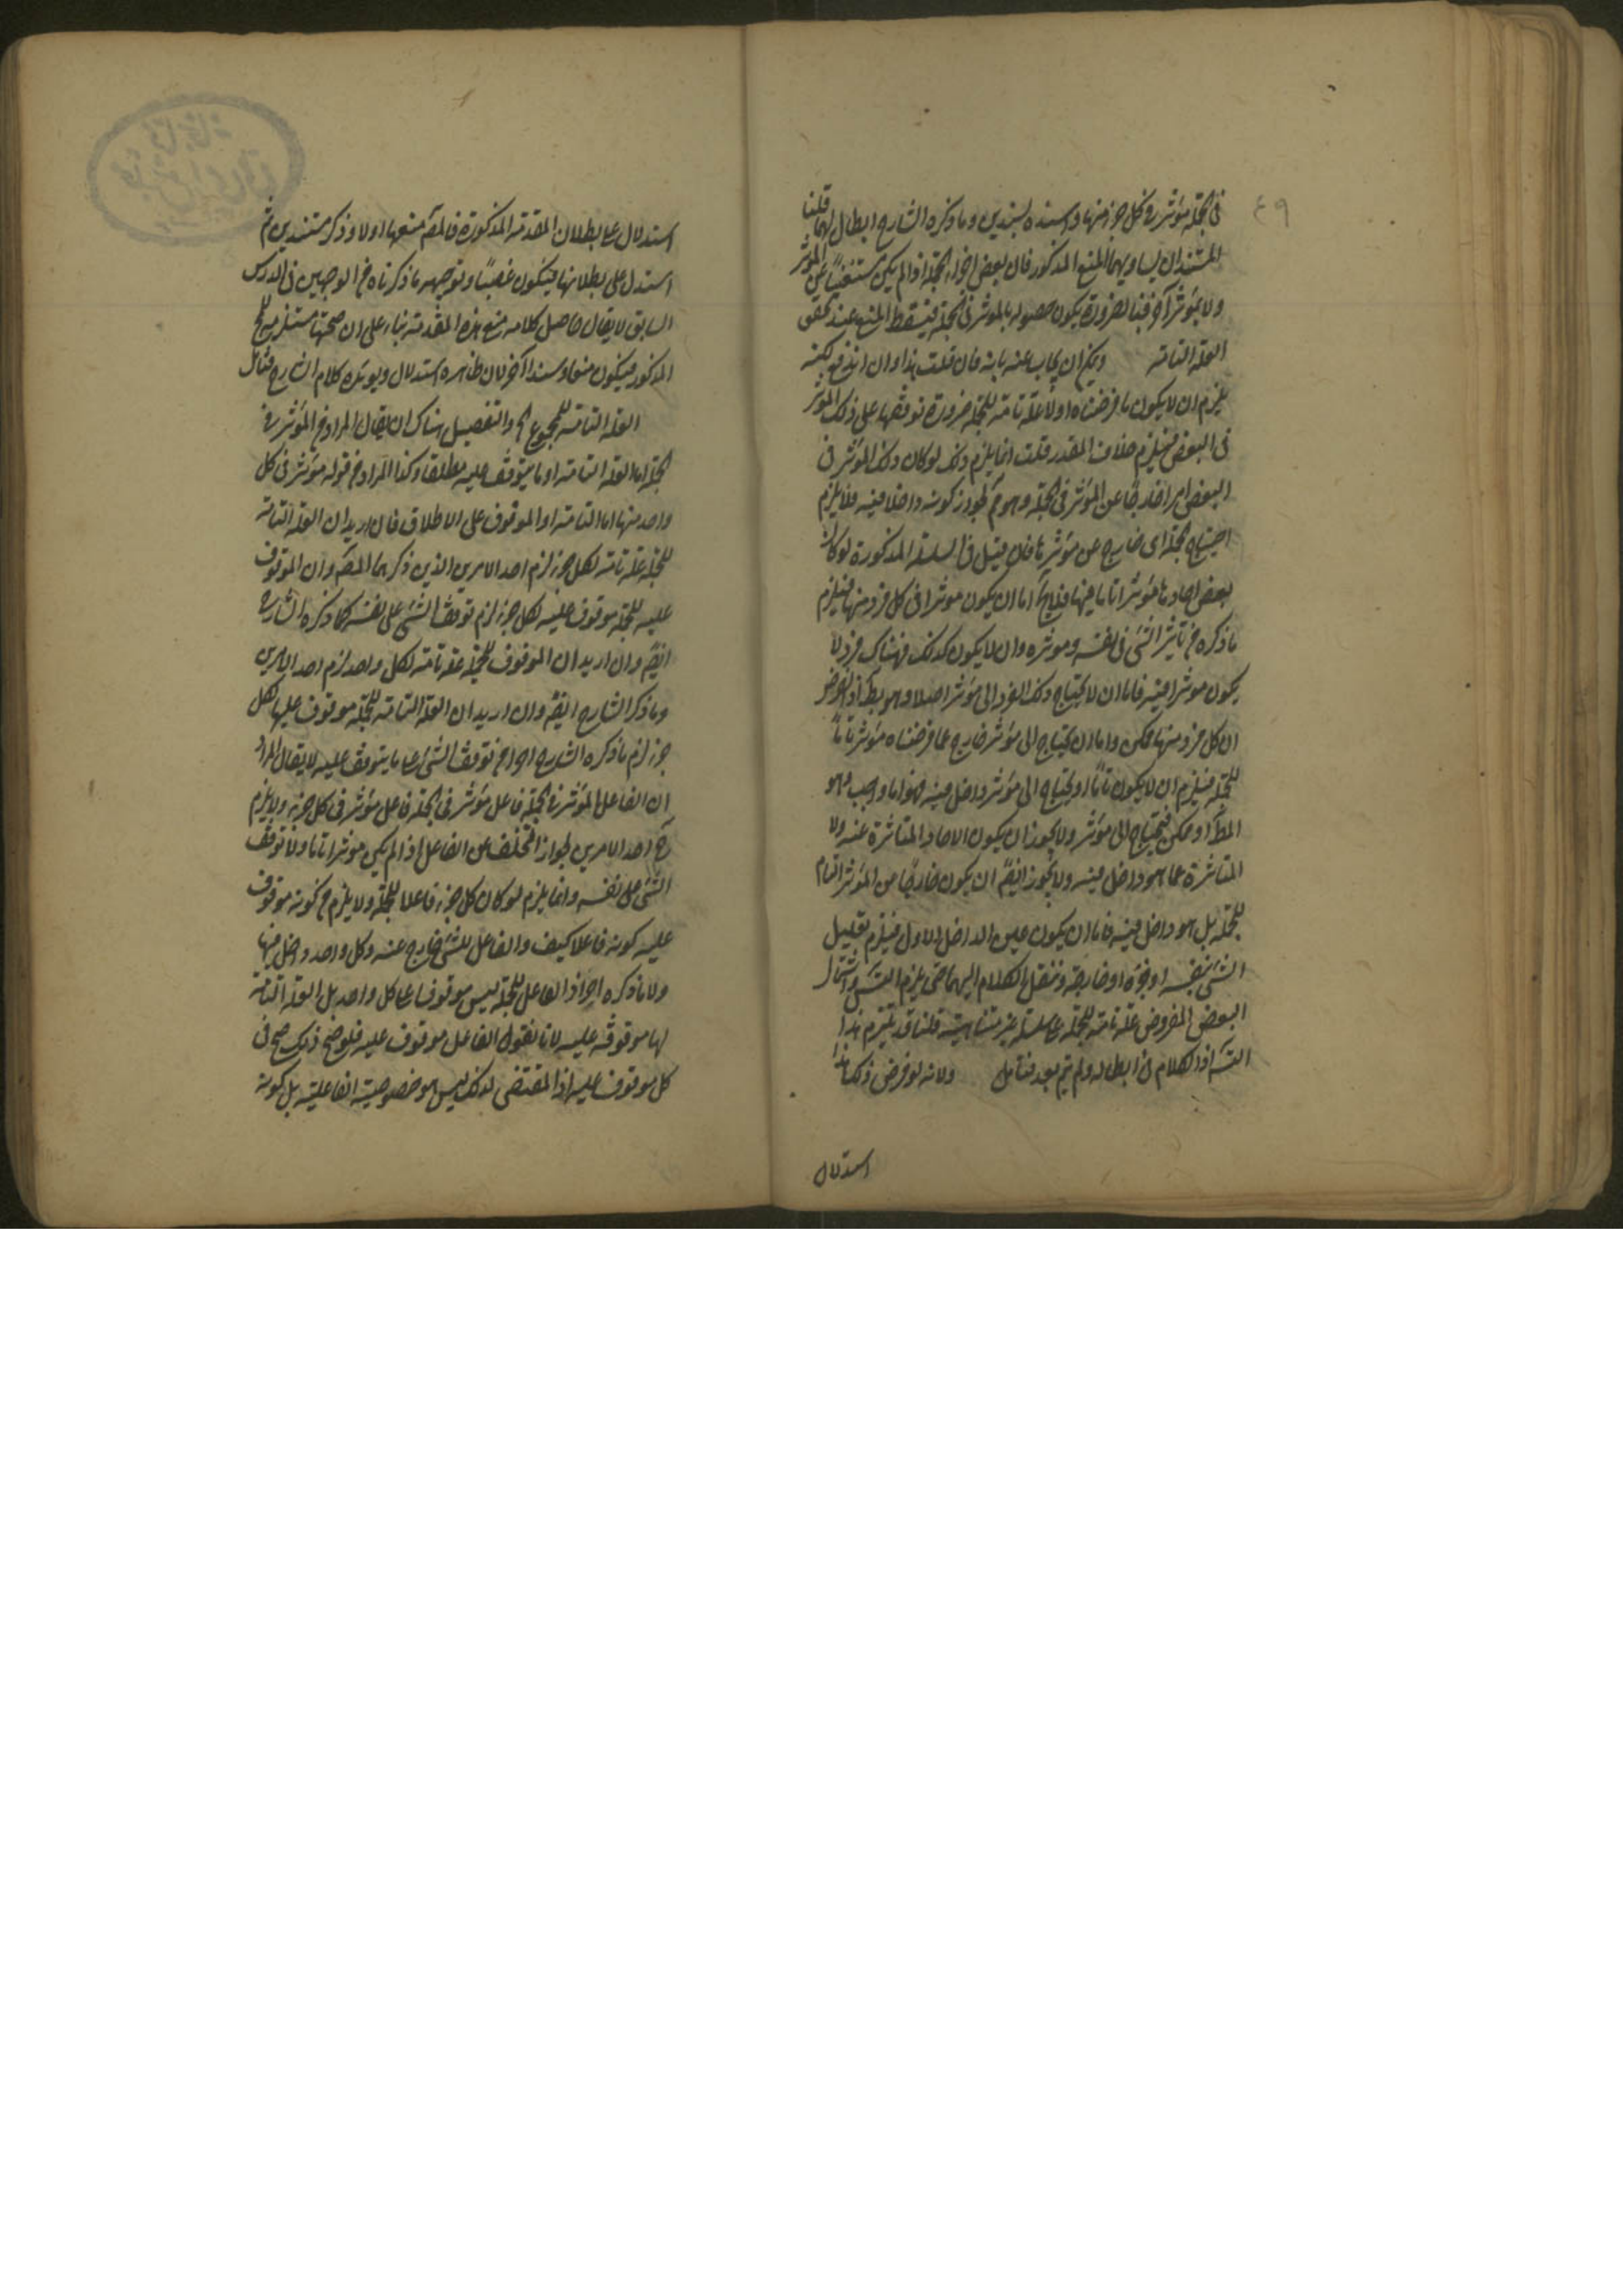 ٤٩
فى الجملة مؤثر فى كل جزء منها واسنده بسندين وما ذكره الشارح ابطال لهما قلنا
المستندان يساويهما المنع المذكور فان بعض اجزاء الجملة اذا لم يكن مستغنيا عن المؤثر
ولا بمؤثر آخر فبالضرورة يكون حصوله بالمؤثر فى الجملة فيسقط المنع عند تحقق
العلة التامة ويمكن ان يجاب عنه بانه فان قلت هذا وان اندفع لكنه
يلزم ان لا يكون ما فرضناه اولا علة تامة للجملة ضرورة توقفها على ذلك المؤثر
فى البعض فيلزم خلاف المقدر قلت انما يلزم ذلك لو كان ذلك المؤثر فى
البعض امرا خارجا عن المؤثر فى الجملة وهو مم لجواز كونه داخلا فيه فلا يلزم
احتياج الجملة الى خارج عن مؤثرها فان قيل فى السلسلة المذكورة لو كان
بعض احادها مؤثرا تاما فيها فلا يخ اما ان يكون مؤثرا فى كل فرد منها فيلزم
ما ذكره من تأثير الشئ فى نفسه ومؤثره وان لا يكون كذلك فهناك فرد لا
يكون مؤثرا فيه فاما ان لا يحتاج ذلك الفرد الى مؤثر اصلا وهو بط اذ الفرض
ان كل فرد منها ممكن واما ان يحتاج الى مؤثر خارج عما فرضناه مؤثرا تاما
للجملة فيلزم ان لا يكون تاما او يحتاج الى مؤثر داخل فيه فهو اما واجب وهو
المط او ممكن فيحتاج الى مؤثر ولا يجوز ان يكون الاحاد المتأثرة عنه ولا
المتأثرة عما هو داخل فيه ولا يجوز ايضا ان يكون خارجا من المؤثر التام
للجملة بل هو داخل فيه فاما ان يكون عين الداخل الاول فيلزم تعليل
الشئ بنفسه او جزءه او خارجه وننقل الكلام اليهما حتى يلزم التس واشتمال
البعض المفروض علة تامة للجملة على سلسلة غير متناهية قلنا قد يلتزم هذا
التس اذ الكلام فى ابطاله ولم يتم بعد فتامل ولانه لو فرض ذلك هذا
استدلال
استدلال على بطلان المقدمة المذكورة فالمص منعها اولا وذكر مستندين ثم
استدل على بطلانها فيكون غصبا وتوجيهه ما ذكرناه من الوجهين فى الدرس
السابق لا يقال حاصل كلامه منع هذه المقدمة بناء على ان صحتها مستلزم للمح
المذكور فيكون منعا وسندا آخر لان ظاهره استدلال ويؤيده كلام الشارح فتأمل
العلة التامة للمجموع الخ والتفصيل هناك ان يقال المراد من المؤثر فى
الجملة اما العلة التامة او ما يتوقف عليه مطلقا وكذا المراد من قوله مؤثر فى كل
واحد منها اما التامة او الموقوف على الاطلاق فان اريد ان العلة التامة
للجملة علة تامة لكل جزء لزم احد الامرين الذين ذكرهما المص وان الموقوف
عليه للجملة موقوف عليه لكل جزء لزم توقف الشئ على نفسه كما ذكره الشارح
ايضا وان اريد ان الموقوف للجملة علة تامة لكل واحد لزم احد الامرين
وما ذكر الشارح ايضا وان اريد ان العلة التامة للجملة موقوف عليها لكل
جزء لزم ما ذكره الشارح اجزاء من توقف الشئ على ما يتوقف عليه لا يقال المراد
ان الفاعل المؤثر فى الجملة فاعل مؤثر فى الجملة فاعل مؤثر فى كل جزء ولا يلزم
ح احد الامرين لجواز التخلف عن الفاعل اذا لم يكن مؤثرا تاما ولا توقف
الشئ على نفسه وانما يلزم لو كان كل جزء فاعلا للجملة ولا يلزم من كونه موقوف
عليه كونه فاعلا كيف والفاعل للشئ خارج عنه وكل واحد داخل فيها
ولا ما ذكره اجزاء اذ الفاعل للجملة ليس موقوفا على كل واحد بل العلة التامة
لها موقوفة عليه لانا نقول الفاعل موقوف عليه فلو صح ذلك صح فى
كل موقوف عليه اذ المقتضى لذلك ليس هو خصوصية الفاعلية بل كونه